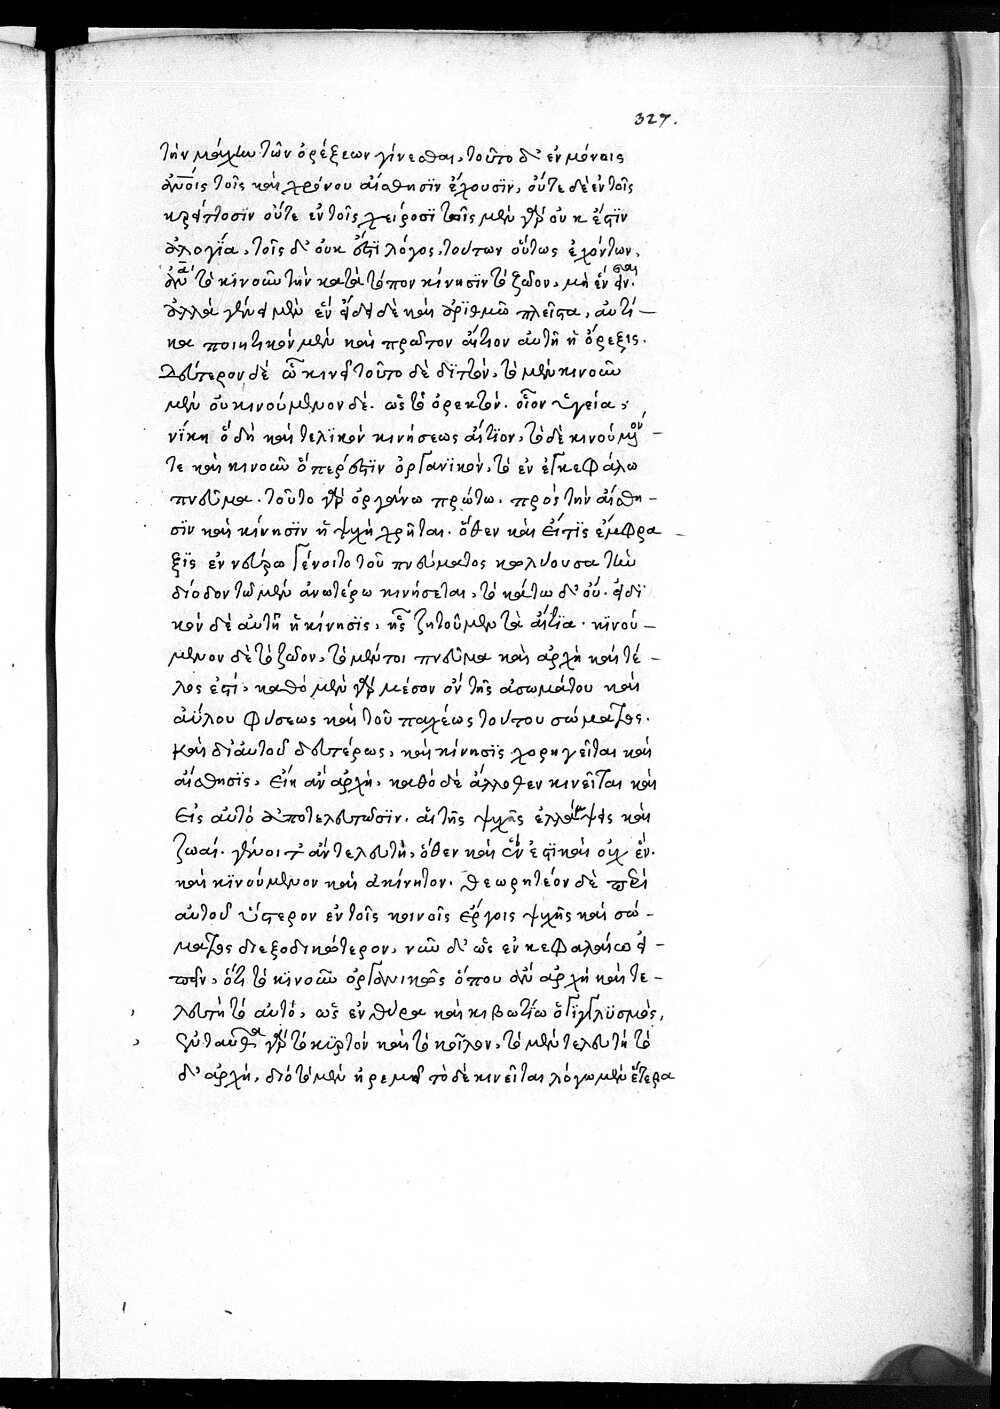 327.
τὴν μάχην τῶν ὀρέξεων γίνεσθαι, τοῦτο δ' ἐν μόνοις
τοῖς καὶ χρόνου αἴσθησϊν ἔχουσϊν, οὔτε δὲ ἐν τοῖς
κρείττοσϊν οὔτε ἐν τοῖς χείροσϊ τοῖς μὲν γὰρ οὐκ ἔστϊν
ἀλογία, τοῖς δ' οὐκ ἔστϊ λόγος, τούτων οὕτως ἐχόντων,
τὸ κϊνοῦν τὴν κατὰ τόπον κίνησϊν τὸ ζῶον, μὴ ἓν
ἀλλὰ γένει μὲν ἓν εἴδει δὲ καὶ ἀρϊθμῶ πλεῖστα, αὐτί–
κα ποιητικὸν μὲν καὶ πρῶτον αἴτιον αὐτὴ ἡ ὄρεξις.
Δεύτερον δὲ ὧ κινεῖ τοῦτο δὲ δϊττὸν, τὸ μὲν κινοῦν
μὲν οὐ κινούμενον δὲ. ὡς τὸ ὀρεκτόν. οἷον ὑγεία,
νίκη ὃ δὴ καὶ τελϊκὸν κινήσεως αἴτϊον, τὸ δὲ κινούμενον –
τε καὶ κινοῦν ὅπερ ἐστὶν ὀργανϊκὸν, τὸ ἐν ἐγκεφάλω
πνεῦμα. τοῦτο γὰρ ὀργάνω πρώτω. πρὸς τὴν αἴσθη–
σϊν καὶ κίνησϊν ἡ ψυχὴ χρῆται. ὅθεν καὶ εἴ τϊς ἔμφρα –
ξϊς ἐν νεύρω γένοιτο τοῦ πνεύματος κωλύουσα τὴν
δίοδον τὸ μὲν ἀνωτέρω κινήσεται, τὸ κάτω δ' οὔ. εἰδϊ
κὸν δὲ αὐτὴ ἡ κίνησϊς, ἧς ζητοῦμεν τὰ αἴτϊα. κϊνού–
μενον δὲ τὸ ζῶον, τὸ μέντοι πνεῦμα καὶ ἀρχὴ καὶ τέ –
λος ἐστί, καθὸ μὲν γὰρ μέσον ὂν τῆς ἀσωμάτου καὶ
ἀΰλου φύσεως καὶ τοῦ παχέως τούτου σώματος.
καὶ δϊ αὐτοῦ δευτέρως, καὶ κίνησϊς χορηγεῖται καὶ
αἴσθησϊς, εἴη ἂν ἀρχὴ, καθὸ δὲ ἄλλοθεν κινεῖται καὶ
εἰς αὐτὸ ἀποτελευτῶσϊν. αἱ τῆς ψυχῆς ἐλλάμψεις καὶ
ζωαί. γένοιτ' ἂν τελευτὴ, ὅθεν καὶ ἕν ἐστϊ καὶ οὐχ ἕν.
καὶ κϊνούμενον καὶ ἀκίνητον. θεωρητέον δὲ περὶ
αὐτοῦ ὕστερον ἐν τοῖς κοινοῖς ἔργοις ψυχῆς καὶ σώ–
ματος διεξοδικώτερον, νῦν δ' ὡς ἐν κεφαλαίω εἰ –
πεῖν, ὅτι τὸ κϊνοῦν ὀργανικῶς ὅπου ἂν ἀρχὴ καὶ τε –
λευτὴ τὸ αὐτό, ὡς ἐν θύρα καὶ κιβωτίω ὁ γϊγγλϋσμός,
ἐνταῦθα γὰρ τὸ κϋρτὸν καὶ τὸ κοῖλον, τὸ μὲν τελευτὴ τὸ
δ' ἀρχὴ, διὸ τὸ μὲν ἠρεμεῖ τὸ δὲ κινεῖται λόγω μὲν ἕτερα